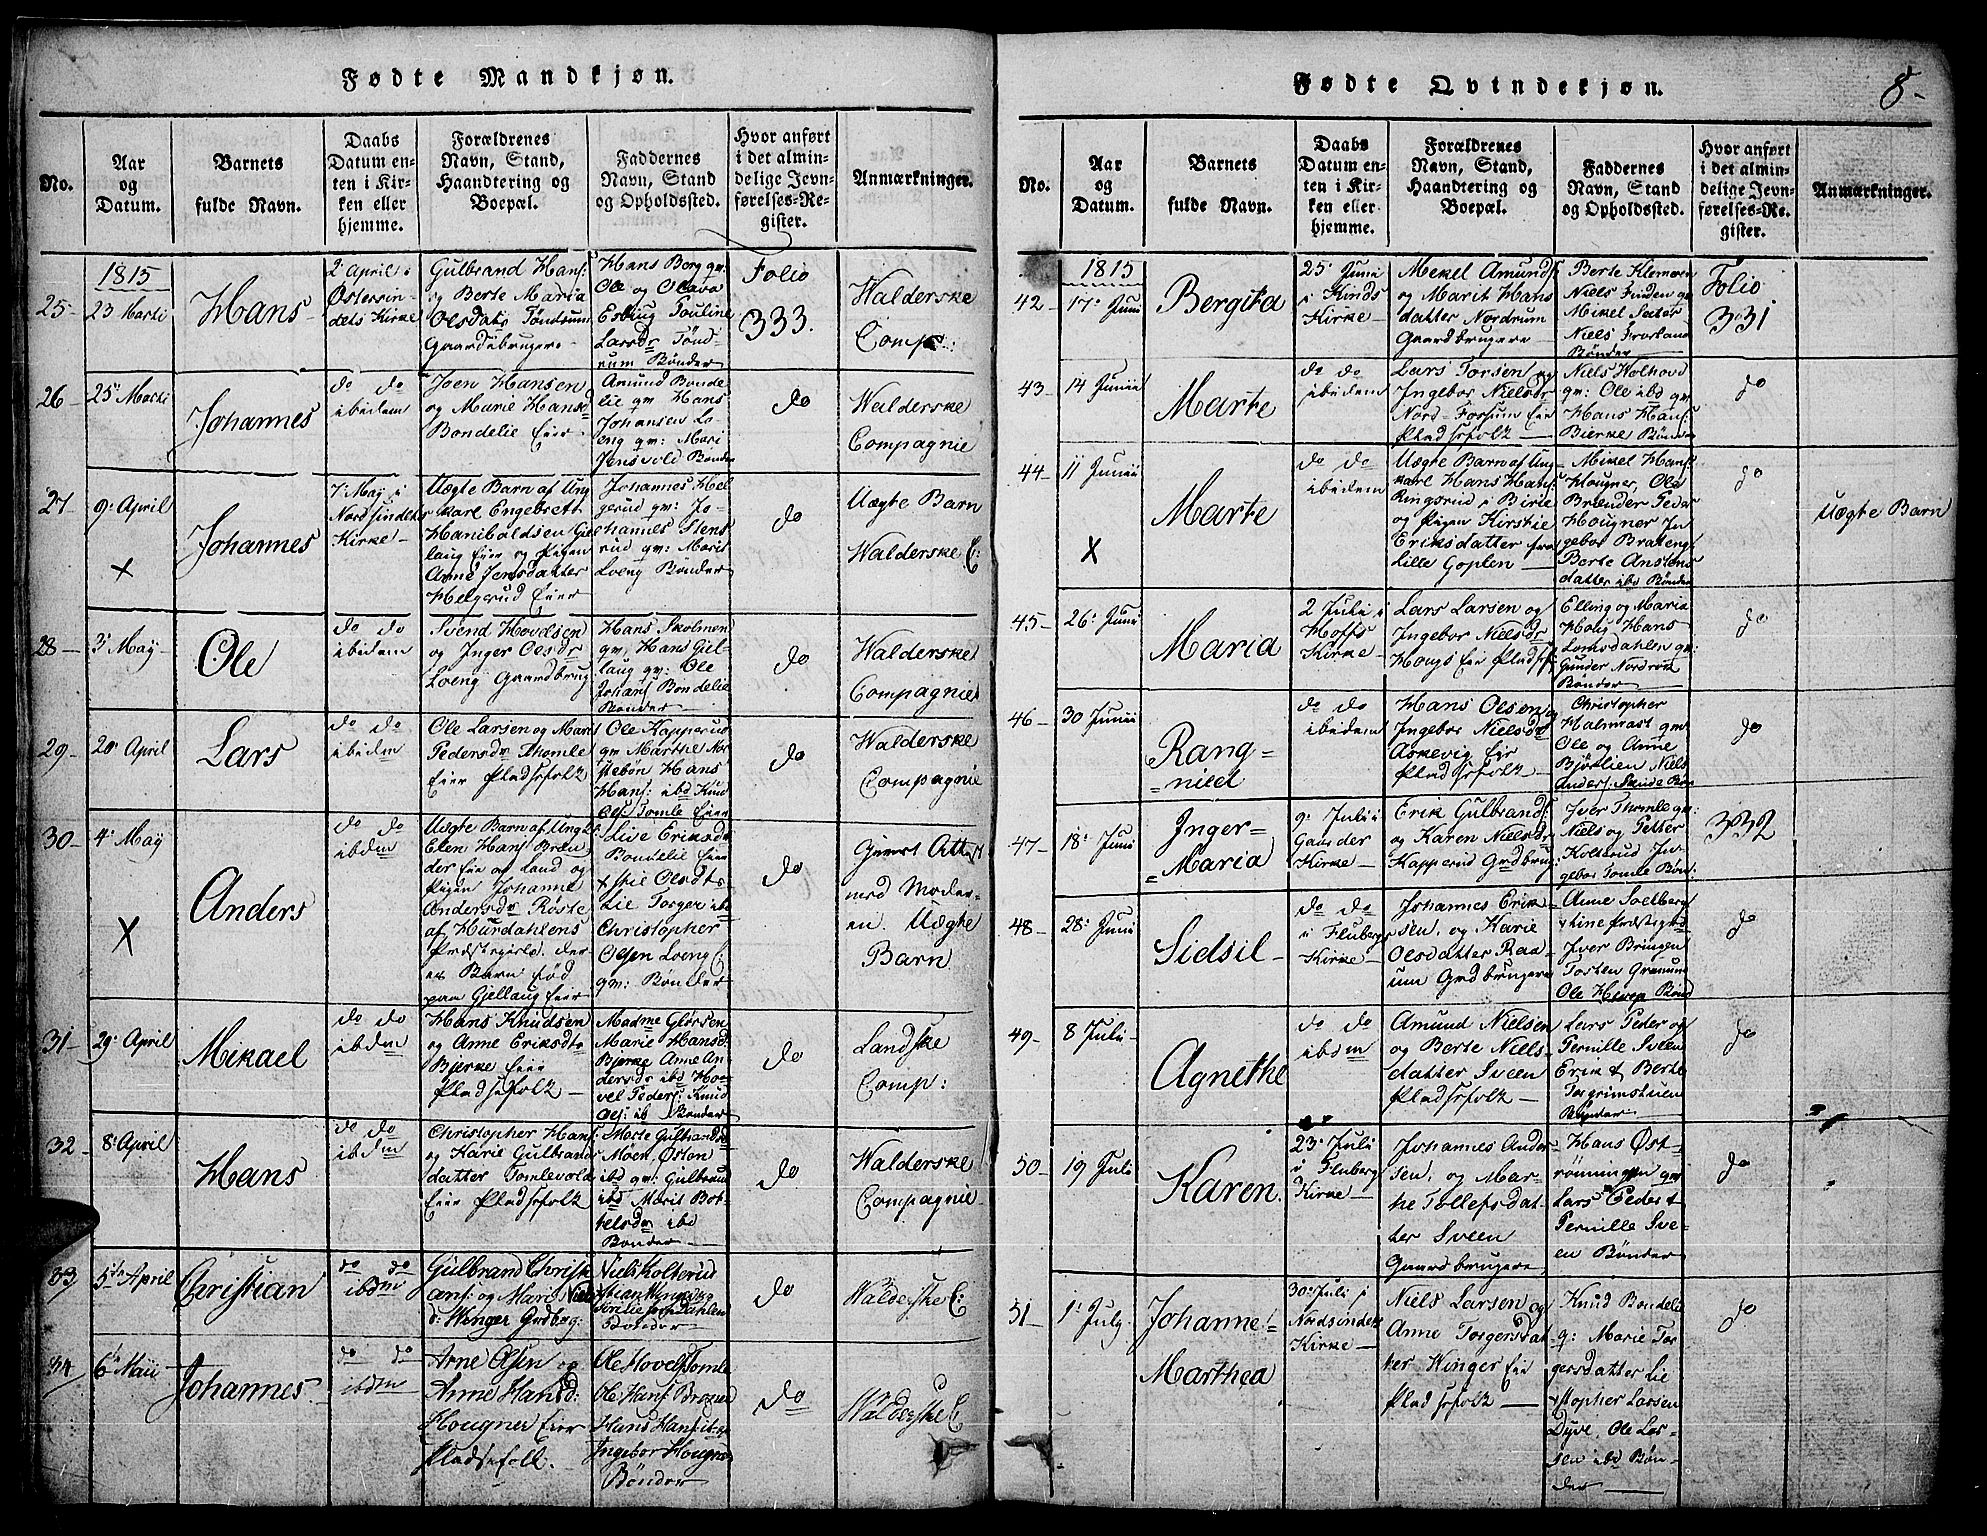 Fødte Mandkjøn.
No.
Aar
og
Datum.
Barnets
fulde Navn.
Daabs
Datum en-
ten i Kir-
ken eller
hjemme.
Forældrenes
Navn, Stand,
Haandtering og
Boepæl.
Faddernes
Navn, Stand
og Opholdssted.
Hvor anført
i det almin-
delige Jevn-
førelses-Re-
gister.
Anmærkninger.
1815
25-
23 Marti
Hans
2 April i
Østersin-
dets Kirke
Gulbrand Hans:
og Berte Maria
Olsdatr Tøndrum
Gaardebrugere-
Hans Berg qv:
Ole og Olava
Esbug Pouline
Larsdr Tønd-
rum Bønder
Folio
333.
Walderske
Comp:
26-
25 Marti
Johannes
do do
ibidem
Joen Hansen
og Marie Hansd
Bondelie Eier
Amund Bonde
lie qv Hans
Johansen Lo
eng qv: Mari
Jensvold Bønder
do
Walderske
Compagnie
27-
9 April
x
Johannes
7 May i
Nordsindets
Kirke-
Uægte Barn af Ung
karl Engebrett
Hanibaldsen Giel
laug Eier og Pigen
Anne Jensdatter
Helgerud Eier
Johannes Hel
gerud qv: Jo-
hannes Stens
rud qv: Marit
Loeng Bønder
do
Uægte Barn
Walderske C:
28-
3 May
Ole
do do
ibidem
Svend Hovelsen
og Inger Olsdr
Loeng Gaardbrug
Hans Skolmen
qv, Hans Giel-
laug qv: Ole
Johans Bondelie
Bønder
do
Walderske
Compagnie
29-
20 April
Lars
do do
ibidm
Ole Larsen og Mari
Pedersdr Thomle
Eier Pladsefolk
Ole Kopperud
qv Marthe Nor
stebøn Hans
Hans: ibd Knud
Ols Tomle Eier
do
Walderske
Compagnie
30-
4 May
X
Anders
do do
ibdm
Uægte Barn af Ungk
Elen Hans Bren
der Eie og Land og
Pigen Johanne
Andersdr Røste
af Hurdahlens
Præstegield, der-
er Barn fød
paa Giellaug Eier
Live Eriksdr
Bondelie Eier
Lie Torger ibd
Christopher
Olsen Loeng
qv: Bønder
do
Givet Attest
med Moder-
en. Uægte
Barn
31-
29 April
Mikael
do do
ibdm
Hans Knudsen
og Anne Eriksdtr
Bjerke Eier
Pladsefolk
Madme Glørsen
Marie Hansd:
Bjerke Anne An
dersdr ibd Ho-
vel Peders: Knud
Ols: ib Bønder
do
Landske
Comp:
32-
8 April
Hans
do do
ibdm
Christopher Hans:
og Karie Gulbrands
datter Tomlevold
Eier Pladsefolk
Marte Gulbrandsd
Moen, Østen
ibd qv: Gulbrand
ibd Marit Bot-
telsdr ibd
Bønder
do
Walderske
Compagnie
33
5te April
Christian
do do
ibdm
Gulbrand Christi
ans: og Mari Niels
d: Winger Grdbrg:
Niels Kolterud
Bønder
do
Walderske C:
34
6te Maii
Johannes
do do
ibdm
Arne Olsen og
Anne Hansd:
Hougner Eier
Pladsefolk.
Ole Hovels Tomle
Hans Hans ibd
Ingebor Hougner
Bønder
do
Walderske C
Fødte Qvindekjøn.
8-
No.
Aar
og
Datum.
Barnets
fulde Navn.
Daabs
Datum en-
ten i Kir-
ken eller
hjemme.
Forældrenes
Navn, Stand,
Haandtering og
Boepæl.
Faddernes
Navn, Stand
og Opholdssted.
Hvor anført
i det almin-
delige Jevn-
førelses-Re-
gister.
Anmærkninger.
1815
42-
17 Juni
Bergita
25 Juni
i Kinds
Kirke-
Mekel Amunds
og Marit Hans
datter Nordrum
Gaardbrugere
Berte Klemeren
Niels Linden qv
Mikel Sæter
Bønder
Folio
331
43-
14 Junii
Marte
do do
ibidem
Lars Torsen og
Ingebor Nielsdr
Nord-Fossum Eier
Pladsefolk
Niels Holhovd
qv: Ole ibd qv
Hans Hans:
Bierke Bønder
do
44-
11 Junii
X
Marte
do do
ibidem
Uægte Barn af Ung-
karl Hans Hans
Ringsrud i Birie
og Pigen Kirstie
Eriksdatter fra
Lille Goplen
Mikel Hans:
Hougner, Ole
Brænder Peder
Hougner In
gebor Brateng
Berte Anstens
datter ibd Bønder
do
Uægte Barn
45-
26 Juni
Maria
2 Juli i
Hoffs
Kirke-
Lars Larsen og
Ingebor Nielsdr
Hougs Eier Pladsf
Elling og Maria
Houg Hans
Lomsdahlen qv:
Gunder Nordrok
Bønder
do
46-
30 Junii
Rang=
=nild
do do
ibidem
Hans Olsen og
Ingebor Nielsdr
Askevig Eier
Pladsefolk
Christopher
Halmrast qv
Ole og Anne
Bjørlien Niels
do
47-
18 Juni
Inger-
=Maria
9 Juli i
Gausder
Kirke
Erik Gulbrands
og Karen Nielsdr
Kopperud Grdbrug
Iver Thomle qv:
Niels og Petter
Kolterud In-
gebor Tomle Bønd.
332
48-
28 Juni
Sidsil-
do do
i Flubergs
Kirke
Johannes Erik-
sen, og Karie
Olsdatter Raa-
um Grdbrugere
Anne Soelberg
Iver Bringen
Torsten Granum
do
49-
8 Juli
Agnethe
do do
ibdm
Amund Nielsen
og Berte Niels-
datter Sveen
Pladsefolk
Lars Peder og
Pernille Sveen
Erik & Berte
Torgrimstuen
Bønder
do
50-
19 Juli
Karen
23 Juli
i Fluberg
Kirke
Johannes Ander
sen, og Mar-
the Tollefsdat-
ter Sveen
Gaardbrugere
Hans Øst-
rønningen qv
Lars Peder &
Pernille Sve-
en Bønder
do
51-
1 July
Johanne=
Marthea
30 Juli i
Nordsindets
Kirke
Niels Larsen og
Anne Torgersdat
ter Winger Eier
Pladsefolk
Knud Bondeli
q: Marie Tor
gersdatter Lie
Xstopher Larsen
Dyve, Ole Lar-
sen ibd Bøn-
der
do